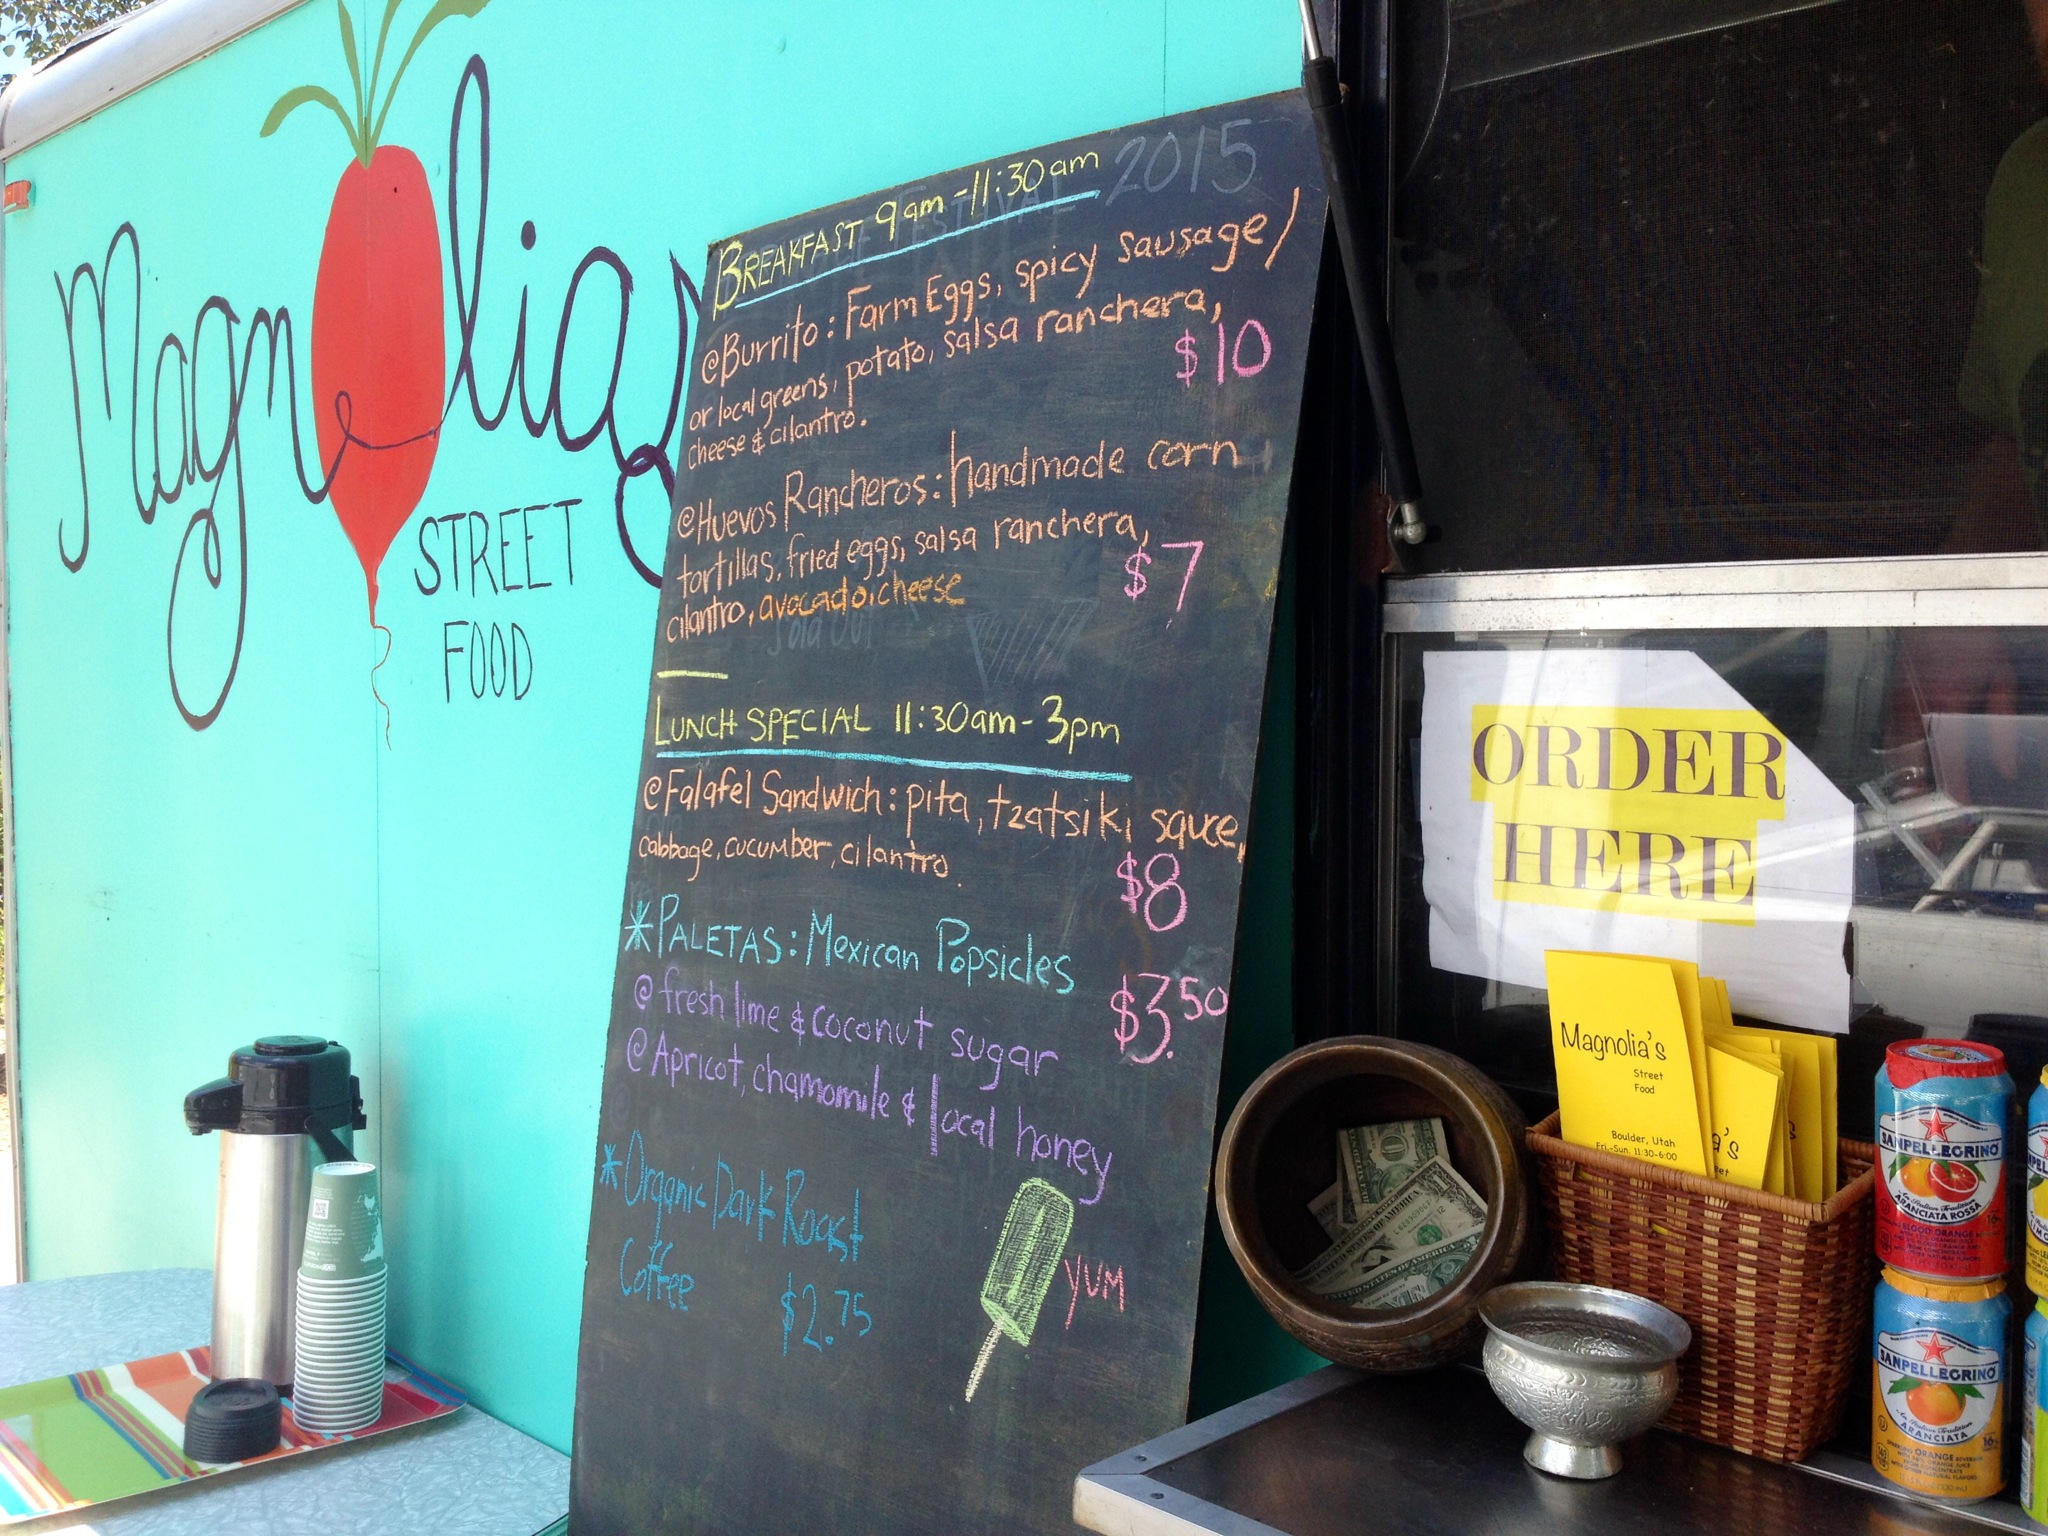 Magnolia's
STREET
FOOD
2015
BREAKFAST 9am-11:30am
@Burrito: Farm Eggs, spicy sausage/
or local greens, potato, salsa ranchera,
cheese & cilantro.
$10
@Huevos Rancheros: handmade corn
tortillas, fried eggs, salsa ranchera,
cilantro, avocado, cheese
$7
Sold Out
LUNCH SPECIAL 11:30am-3pm
@Falafel Sandwich: pita, tzatsiki sauce,
cabbage, cucumber, cilantro.
$8
*PALETAS: Mexican Popsicles
$3.50
@fresh lime & coconut sugar
@Apricot, chamomile & local honey
*Organic Dark Roast
Coffee $2.75
YUM
ORDER
HERE
Magnolia's
Street
Food
Boulder, Utah
Fri.-Sun. 11:30-6:00
SANPELLEGRINO
ARANCIATA ROSSA
SANPELLEGRINO
ARANCIATA